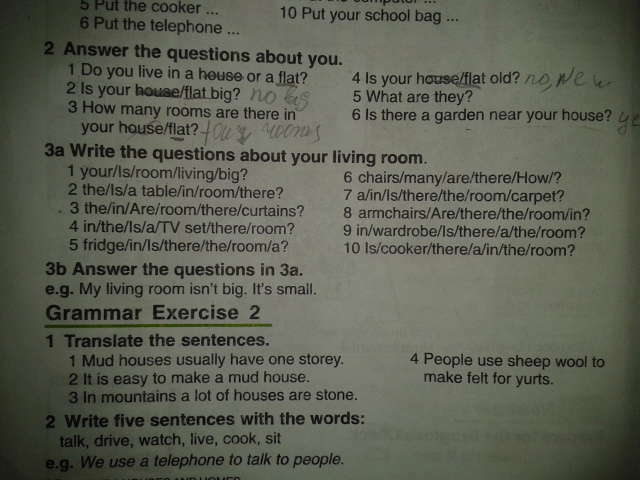 5 Put the cooker ...
6 Put the telephone ...
10 Put your school bag ...
2 Answer the questions about you.
1 Do you live in a house or a flat?
2 Is your house/flat big? no big
3 How many rooms are there in
your house/flat? four rooms
4 Is your house/flat old? no, New
5 What are they?
6 Is there a garden near your house? ye
3a Write the questions about your living room.
1 your/Is/room/living/big?
2 the/Is/a table/in/room/there?
3 the/in/Are/room/there/curtains?
4 in/the/Is/a/TV set/there/room?
5 fridge/in/Is/there/the/room/a?
6 chairs/many/are/there/How/?
7 a/in/Is/there/the/room/carpet?
8 armchairs/Are/there/the/room/in?
9 in/wardrobe/Is/there/a/the/room?
10 Is/cooker/there/a/in/the/room?
3b Answer the questions in 3a.
e.g. My living room isn't big. It's small.
Grammar Exercise 2
1 Translate the sentences.
1 Mud houses usually have one storey.
2 It is easy to make a mud house.
3 In mountains a lot of houses are stone.
4 People use sheep wool to
make felt for yurts.
2 Write five sentences with the words:
talk, drive, watch, live, cook, sit
e.g. We use a telephone to talk to people.